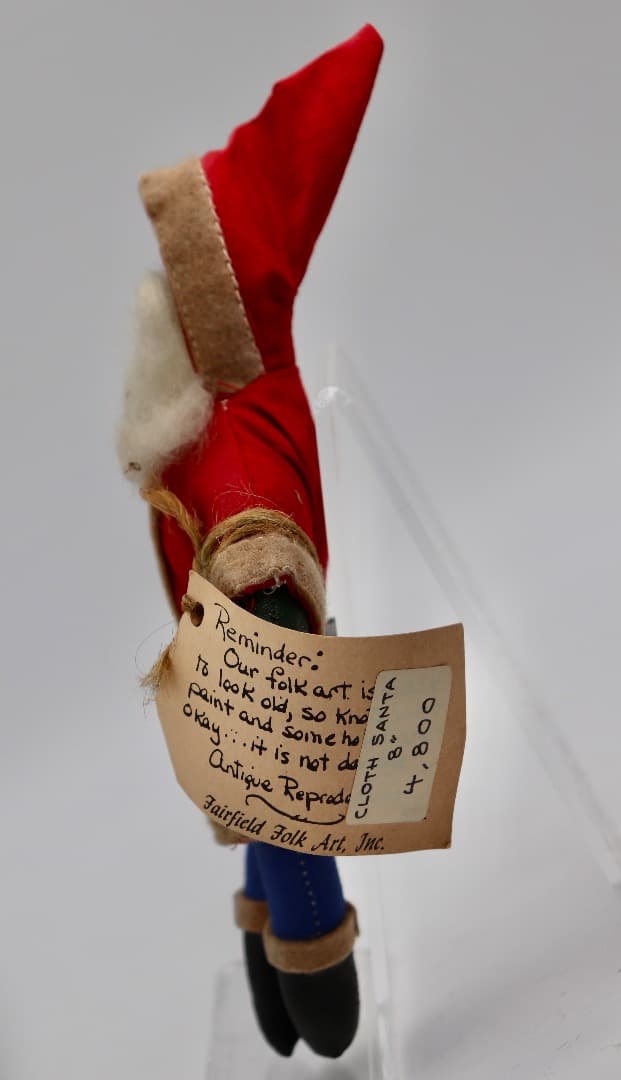 Reminder:
Our folk art is
to look old, so
paint and some
okay...it is not
Antique
Fairfield Folk Art, Inc.
CLOTH SANTA
8"
4,800